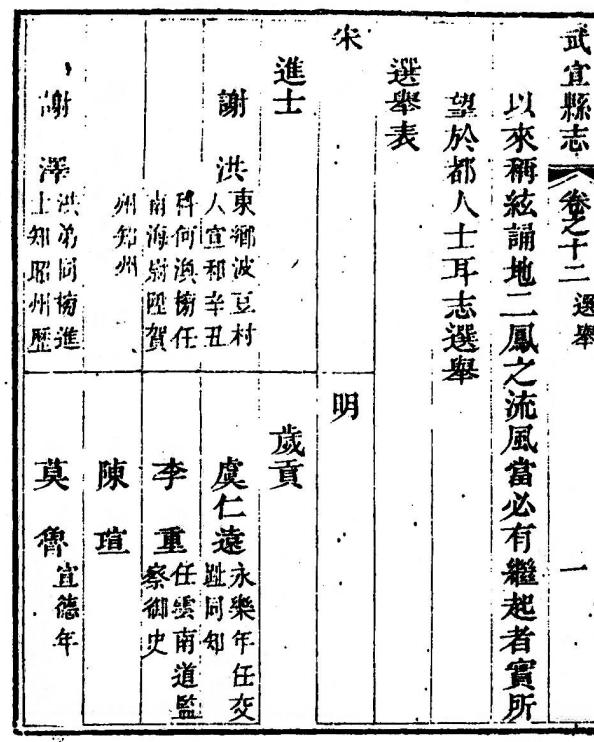 武宣縣志
卷之十二
選舉
一
以來稱絃誦地二鳳之流風當必有繼起者實所
望於都人士耳志選舉
選舉表
宋
進士
謝洪
東鄉波豆村
人宣和辛丑
科何渙榜任
南海尉陞賀
州知州
謝澤
洪弟同榜進
士知昭州歷
明
歲貢
虞仁遠
永樂年任交
趾同知
李重
任雲南道監
察御史
陳瑄
莫魯
宣德年